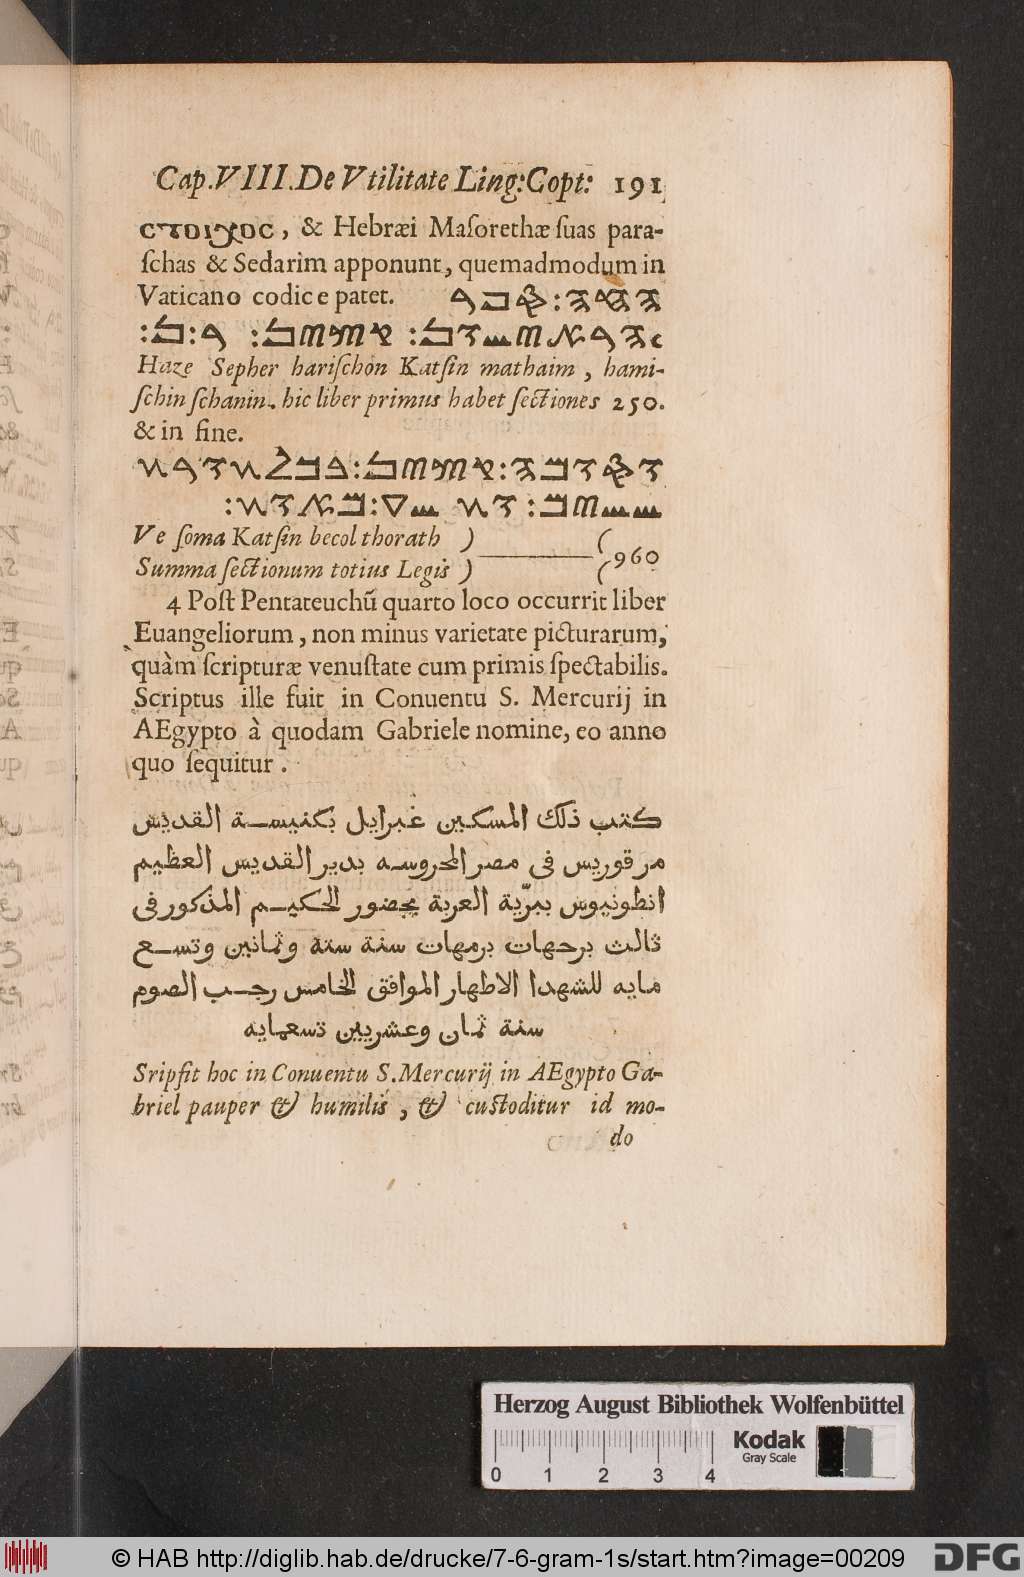 Cap.VIII.De Vtilitate Ling:Copt: 191
ⲥⲧⲟⲓⲭⲟⲥ, & Hebræi Masorethæ suas para-
schas & Sedarim apponunt, quemadmodum in
Vaticano codice patet. ࠄࠇࠄ: ࠎࠐࠓ
Haze Sepher harischon Katsin mathaim, hami-
schin schanin. hic liber primus habet sectiones 250.
& in fine.
Ve soma Katsin becol thorath )
Summa sectionum totius Legis ) ( 960
4 Post Pentateuchū quarto loco occurrit liber
Euangeliorum, non minus varietate picturarum,
quàm scripturæ venustate cum primis spectabilis.
Scriptus ille fuit in Conuentu S. Mercurij in
AEgypto à quodam Gabriele nomine, eo anno
quo sequitur.
كتب ذلك المسكين غبرايل بكنيسة القديس
مرقوريس فى مصر المحروسه بدير القديس العظيم
انطونيوس ببرّية العربة بحضور الحكيم المذكور فى
ثالث برحهات برمهات سنة ستة وثمانين وتسع
مايه للشهدا الاطهار الموافق الخامس رجب الصوم
سنة ثمان وعشريين تسعمايه
Sripsit hoc in Conuentu S.Mercurij in AEgypto Ga-
briel pauper & humilis, & custoditur id mo-
do
Herzog August Bibliothek Wolfenbüttel
Kodak
Gray Scale
0 1 2 3 4
© HAB http://diglib.hab.de/drucke/7-6-gram-1s/start.htm?image=00209
DFG